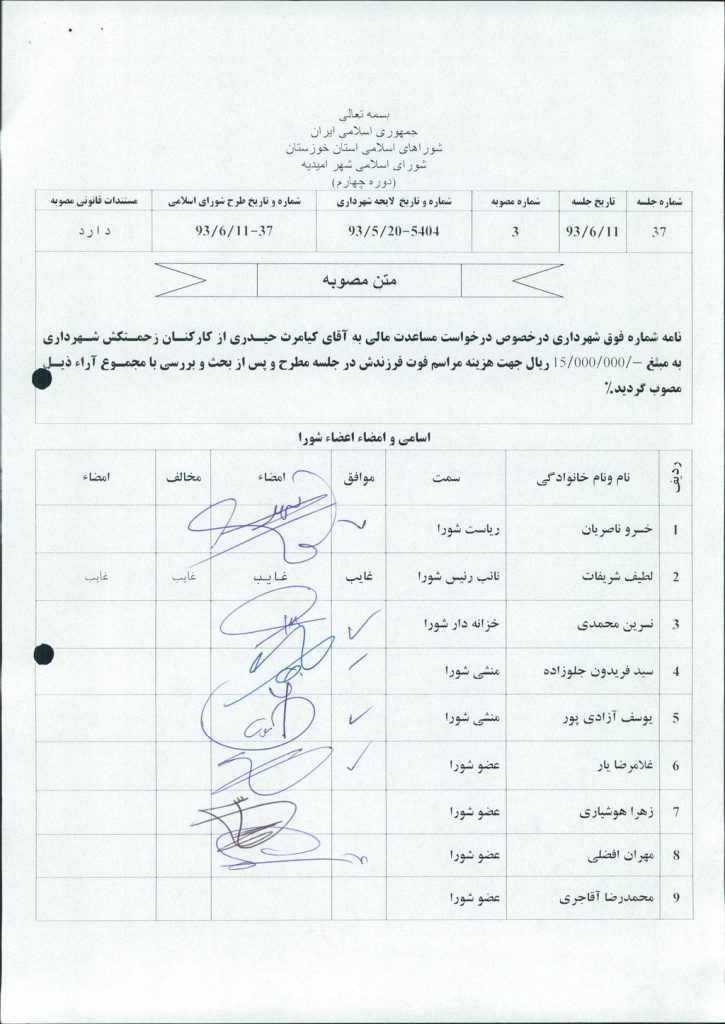 بسمه تعالی
جمهوری اسلامی ایران
شوراهای اسلامی استان خوزستان
شورای اسلامی شهر امیدیه
(دوره چهارم)
شماره جلسه تاریخ جلسه شماره مصوبه شماره و تاریخ لایحه شهرداری شماره و تاریخ طرح شورای اسلامی مستندات قانونی مصوبه
37 93/6/11 3 93/5/20-5404 93/6/11-37 دارد
متن مصوبه
نامه شماره فوق شهرداری درخصوص درخواست مساعدت مالی به آقای کیامرث حیدری از کارکنان زحمتکش شهرداری
به مبلغ –/15/000/000 ریال جهت هزینه مراسم فوت فرزندش در جلسه مطرح و پس از بحث و بررسی با مجموع آراء ذیل
مصوب گردید.%
اسامی و امضاء اعضاء شورا
ردیف نام ونام خانوادگی سمت موافق امضاء مخالف امضاء
1 خسرو ناصریان ریاست شورا
2 لطیف شریفات نائب رئیس شورا غایب غایب غایب غایب
3 نسرین محمدی خزانه دار شورا
4 سید فریدون جلوزاده منشی شورا
5 یوسف آزادی پور منشی شورا
6 غلامرضا یار عضو شورا
7 زهرا هوشیاری عضو شورا
8 مهران افضلی عضو شورا
9 محمدرضا آقاجری عضو شورا